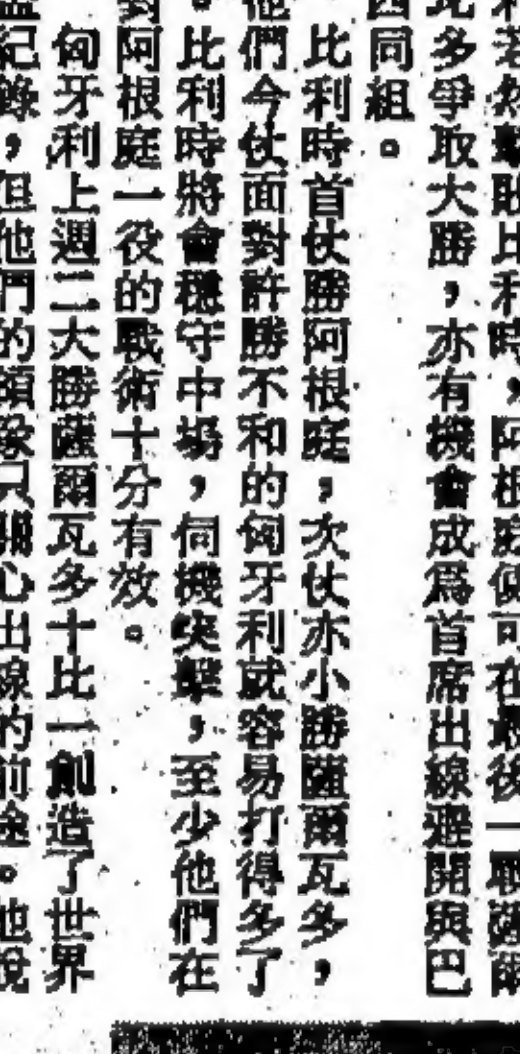 利若然擊敗比利時，阿根廷便可在最後一戰薩爾
此多爭取大勝，亦有機會成爲首席出線避開與巴
西同組。
比利時首仗勝阿根庭，次仗亦小勝薩爾瓦多，
他們今仗面對許勝不和的匈牙利就容易打得多了
。比利時將會穩守中場，伺機突擊，至少他們在
對阿根庭一役的戰術十分有效。
匈牙利上週二大勝薩爾瓦多十比一創造了世界
盃紀錄，但他們的領隊只關心出線的前途。他說